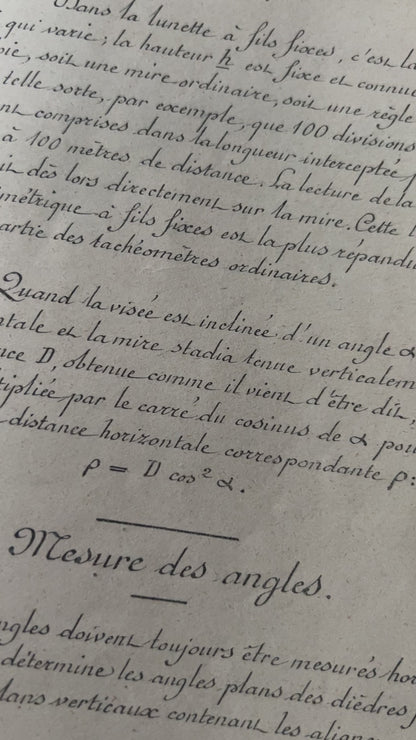 Dans la lunette à fils fixes, c'est la
qui varie; la hauteur h est fixe et connue
soit une mire ordinaire, soit une règle
telle sorte, par exemple, que 100 divisions
comprises dans la longueur interceptée
à 100 mètres de distance. La lecture de la
dès lors directement sur la mire. Cette
à fils fixes est la plus répandu
des tachéomètres ordinaires.
Quand la visée est inclinée d'un angle α
et la mire stadia tenue verticalem
D, obtenue comme il vient d'être dit,
par le carré du cosinus de α pou
distance horizontale correspondante ρ:
ρ = D cos² α.
Mesure des angles.
ngles doivent toujours être mesurés hor
détermine les angles plans des dièdres
plans verticaux contenant les align